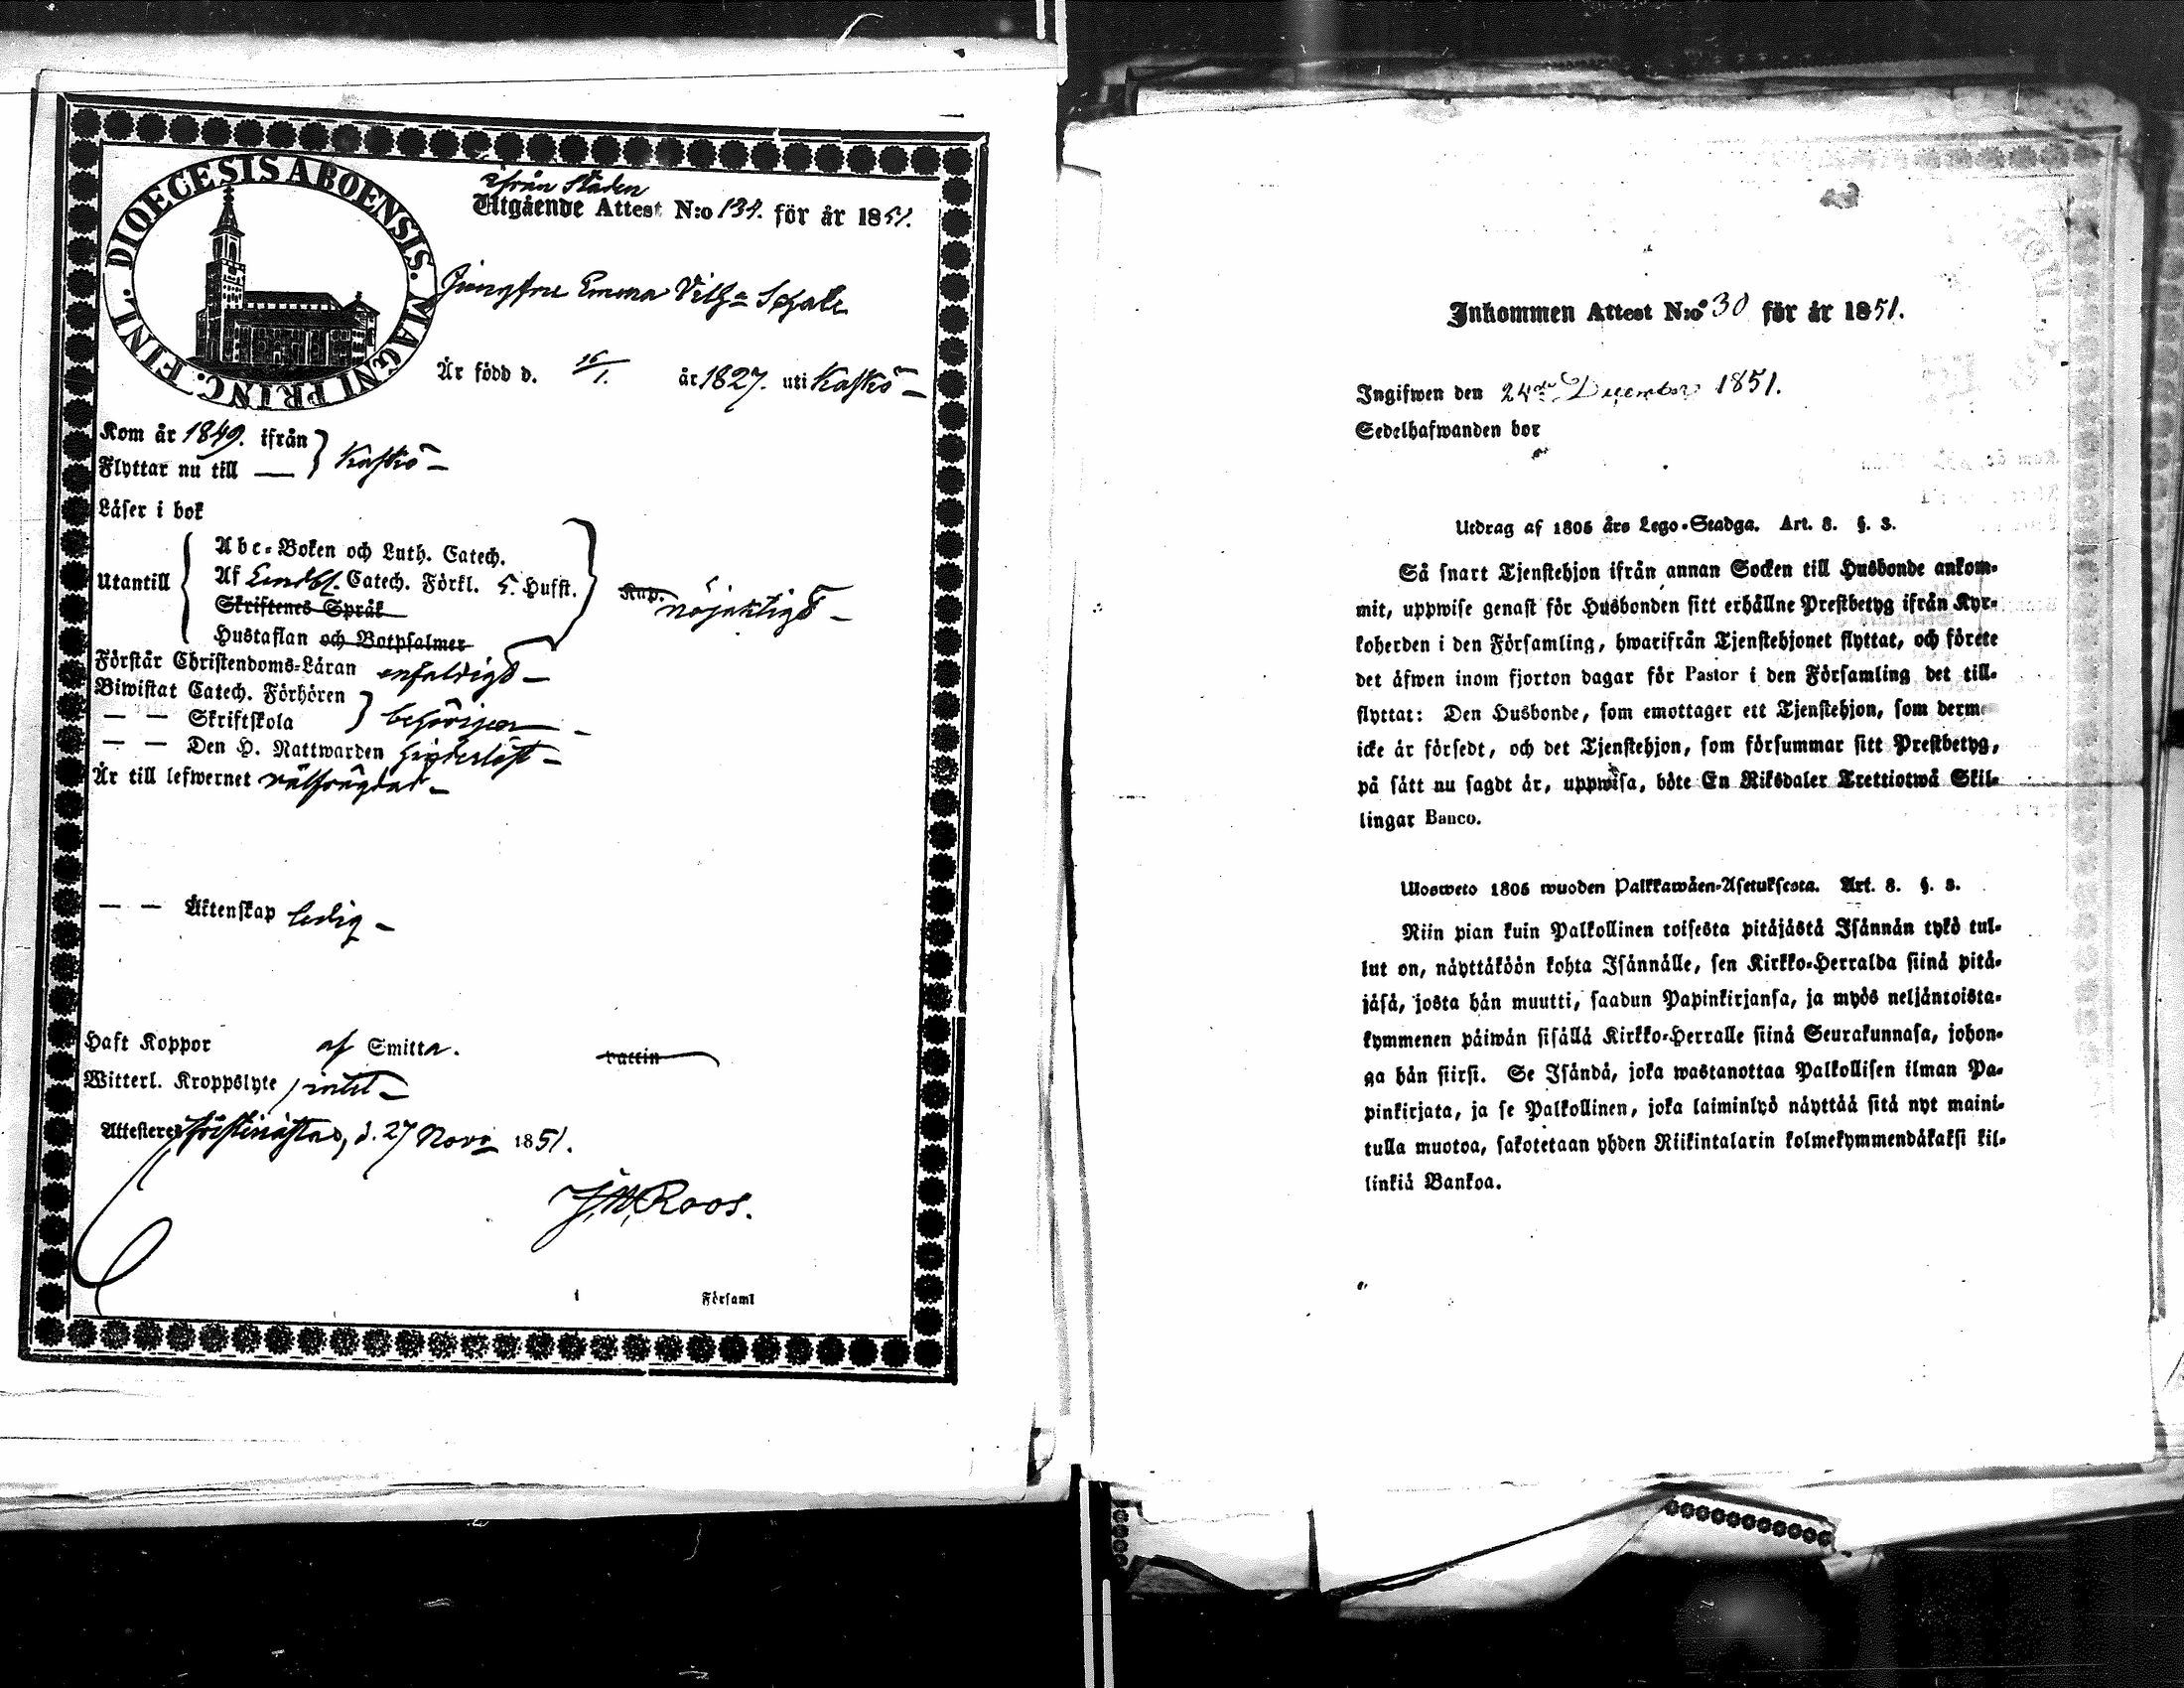 DIOECESIS ABOENSIS. MAGNI PRINC. FINL.
ifrån Staden
Utgående Attest N:o 134. för år 1851.
Jungfru Emma Vilh:a
Är född d. 16/1. år 1827. uti Kaskö
Kom år 1849. ifrån
Flyttar nu till — } Kaskö
Läser i bok
Utantill
Abc-Boken och Luth. Catech.
Af Lindbl. Catech. Förkl. 5. Hufst.
Skriftenes Språk
Hustaflan och Botpsalmer
Kap. nöjaktigt
Förstår Christendoms-Läran enfaldigt
Biwistat Catech. Förhören
— — Skriftskola } behörigen
— — Den H. Nattwarden hinderlöst
Är till lefwernet välfrägdad
— — Äktenskap ledig
Haft Koppor af Smitta. vaccin
Witterl. Kroppslyte intet
Attesteres Kristinestad, d. 27 Nov. 1851.
Roos.
i Församl
Inkommen Attest N:o 30 för år 1851.
Ingifwen den 24de December 1851.
Sedelhafwanden bor
Utdrag af 1805 års Lego-Stadga. Art. 8. §. 3.
Så snart Tjenstehjon ifrån annan Socken till Husbonde ankom-
mit, uppwise genast för Husbonden sitt erhållne Prestbetyg ifrån Kyr-
koherden i den Församling, hwarifrån Tjenstehjonet flyttat, och förete
det äfwen inom fjorton dagar för Pastor i den Församling det till-
flyttat: Den Husbonde, som emottager ett Tjenstehjon, som derm
icke är försedt, och det Tjenstehjon, som försummar sitt Prestbetyg,
på sätt nu sagdt är, uppwisa, böte En Riksdaler Trettiotwå Skil-
lingar Banco.
Ulosweto 1805 wuoden Palkkawäen-Asetuksesta. Art. 8. §. 3.
Niin pian kuin Palkollinen toisesta pitäjästä Isännän tykö tul-
lut on, näyttäköön kohta Isännälle, sen Kirkko-Herralda siinä pitä-
jäsä, josta hän muutti, saadun Papinkirjansa, ja myös neljäntoista-
kymmenen päiwän sisällä Kirkko-Herralle siinä Seurakunnasa, johon-
ga hän siirsi. Se Isändä, joka wastanottaa Palkollisen ilman Pa-
pinkirjata, ja se Palkollinen, joka laiminlyö näyttää sitä nyt maini-
tulla muotoa, sakotetaan yhden Riikintalarin kolmekymmendäkaksi kil-
linkiä Bankoa.